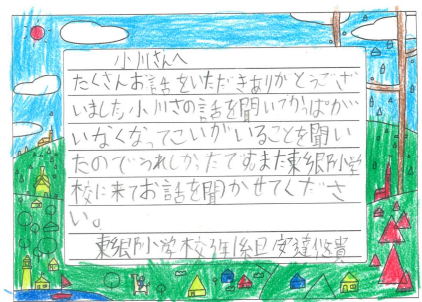 小川さんへ
たくさんお話をいただきありがとうござ
いました。小川さの話を聞いてかっぱが
いなくなってこいがいることを聞い
たのでうれしかったですまた東郷小学
校に来てお話を聞かせてくださ
い。
東郷小学校3年1組 安達悠貴